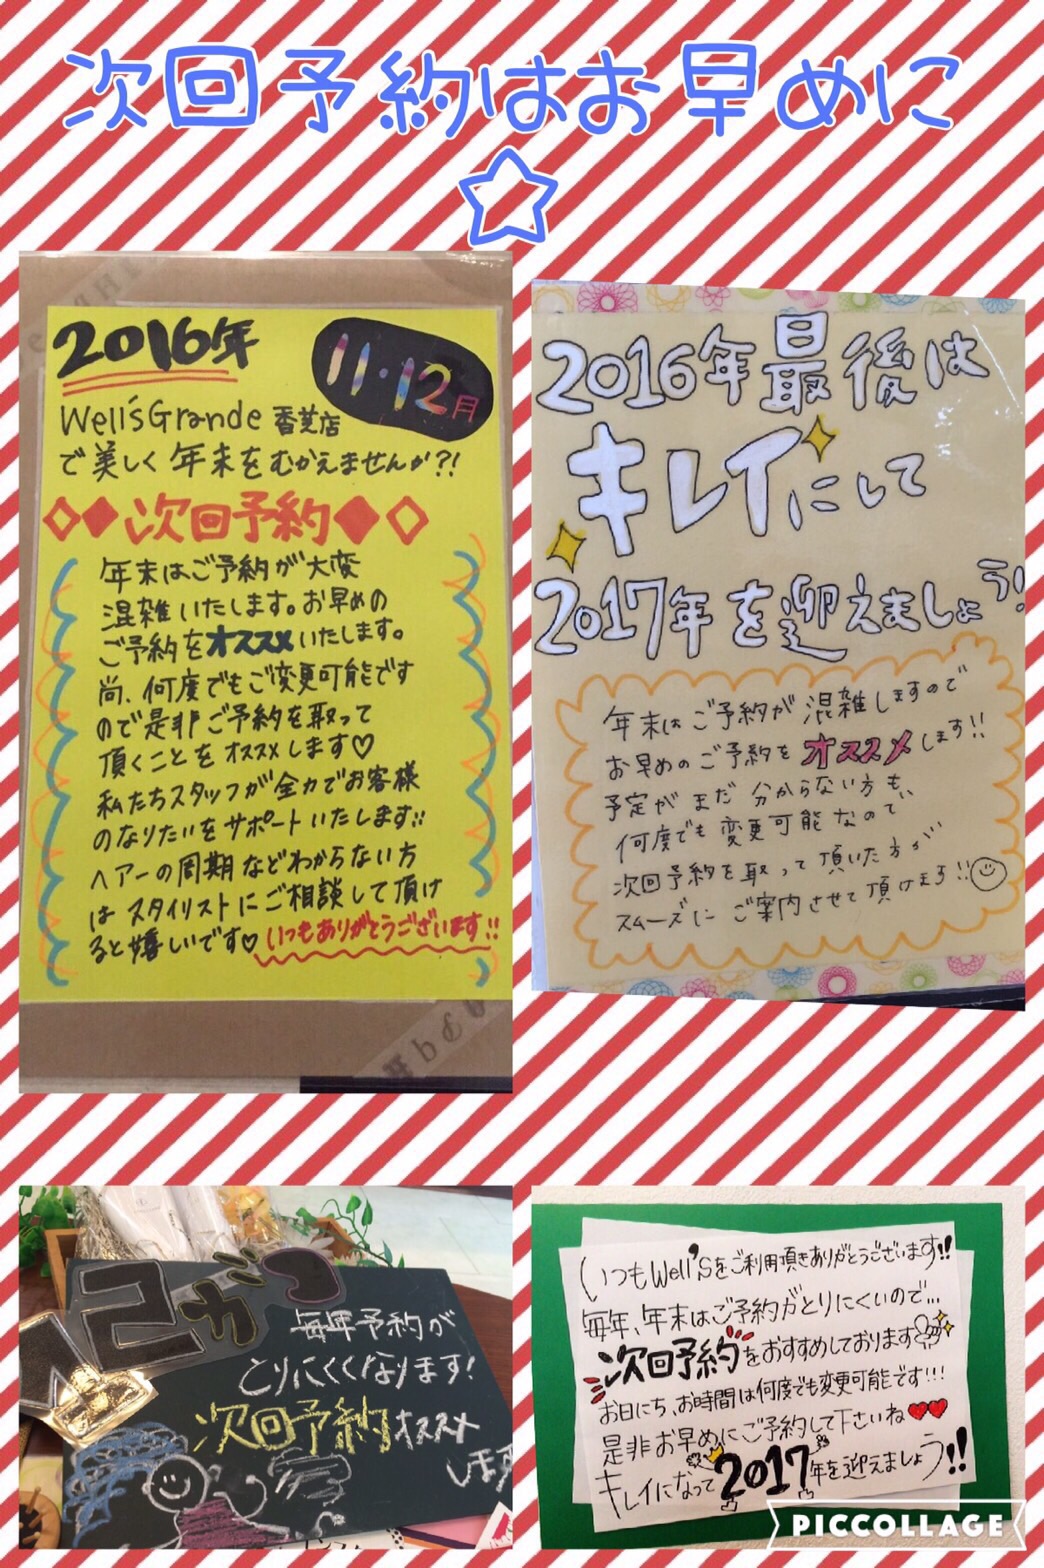 次回予約はお早めに
☆
2016年
11・12月
Well'sGrande 香芝店
で美しく年末をむかえませんか?!
◇◆次回予約◆◇
年末はご予約が大変
混雑いたします。お早めの
ご予約をオススメいたします。
尚、何度でもご変更可能です
ので是非ご予約を取って
頂くことをオススメします♡
私たちスタッフが全力でお客様
のなりたいをサポートいたします!!
ヘアーの周期などわからない方
はスタイリストにご相談して頂け
ると嬉しいです♡いつもありがとうございます!!
2016年最後は
キレイにして
2017年を迎えましょう!
年末はご予約が混雑しますので
お早めのご予約をオススメします!!
予定がまだ分からない方も、
何度でも変更可能なので、
次回予約を取って頂いた方が
スムーズにご案内させて頂けます!!
12がつ
毎年予約が
とりにくくなります!
次回予約オススメ
します
いつもWell'sをご利用頂きありがとうございます!!
毎年、年末はご予約がとりにくいので...
次回予約をおすすめしております
お日にち、お時間は何度でも変更可能です!!!
是非お早めにご予約して下さいね♥♥
キレイになって2017年を迎えましょう!!
PICCOLLAGE